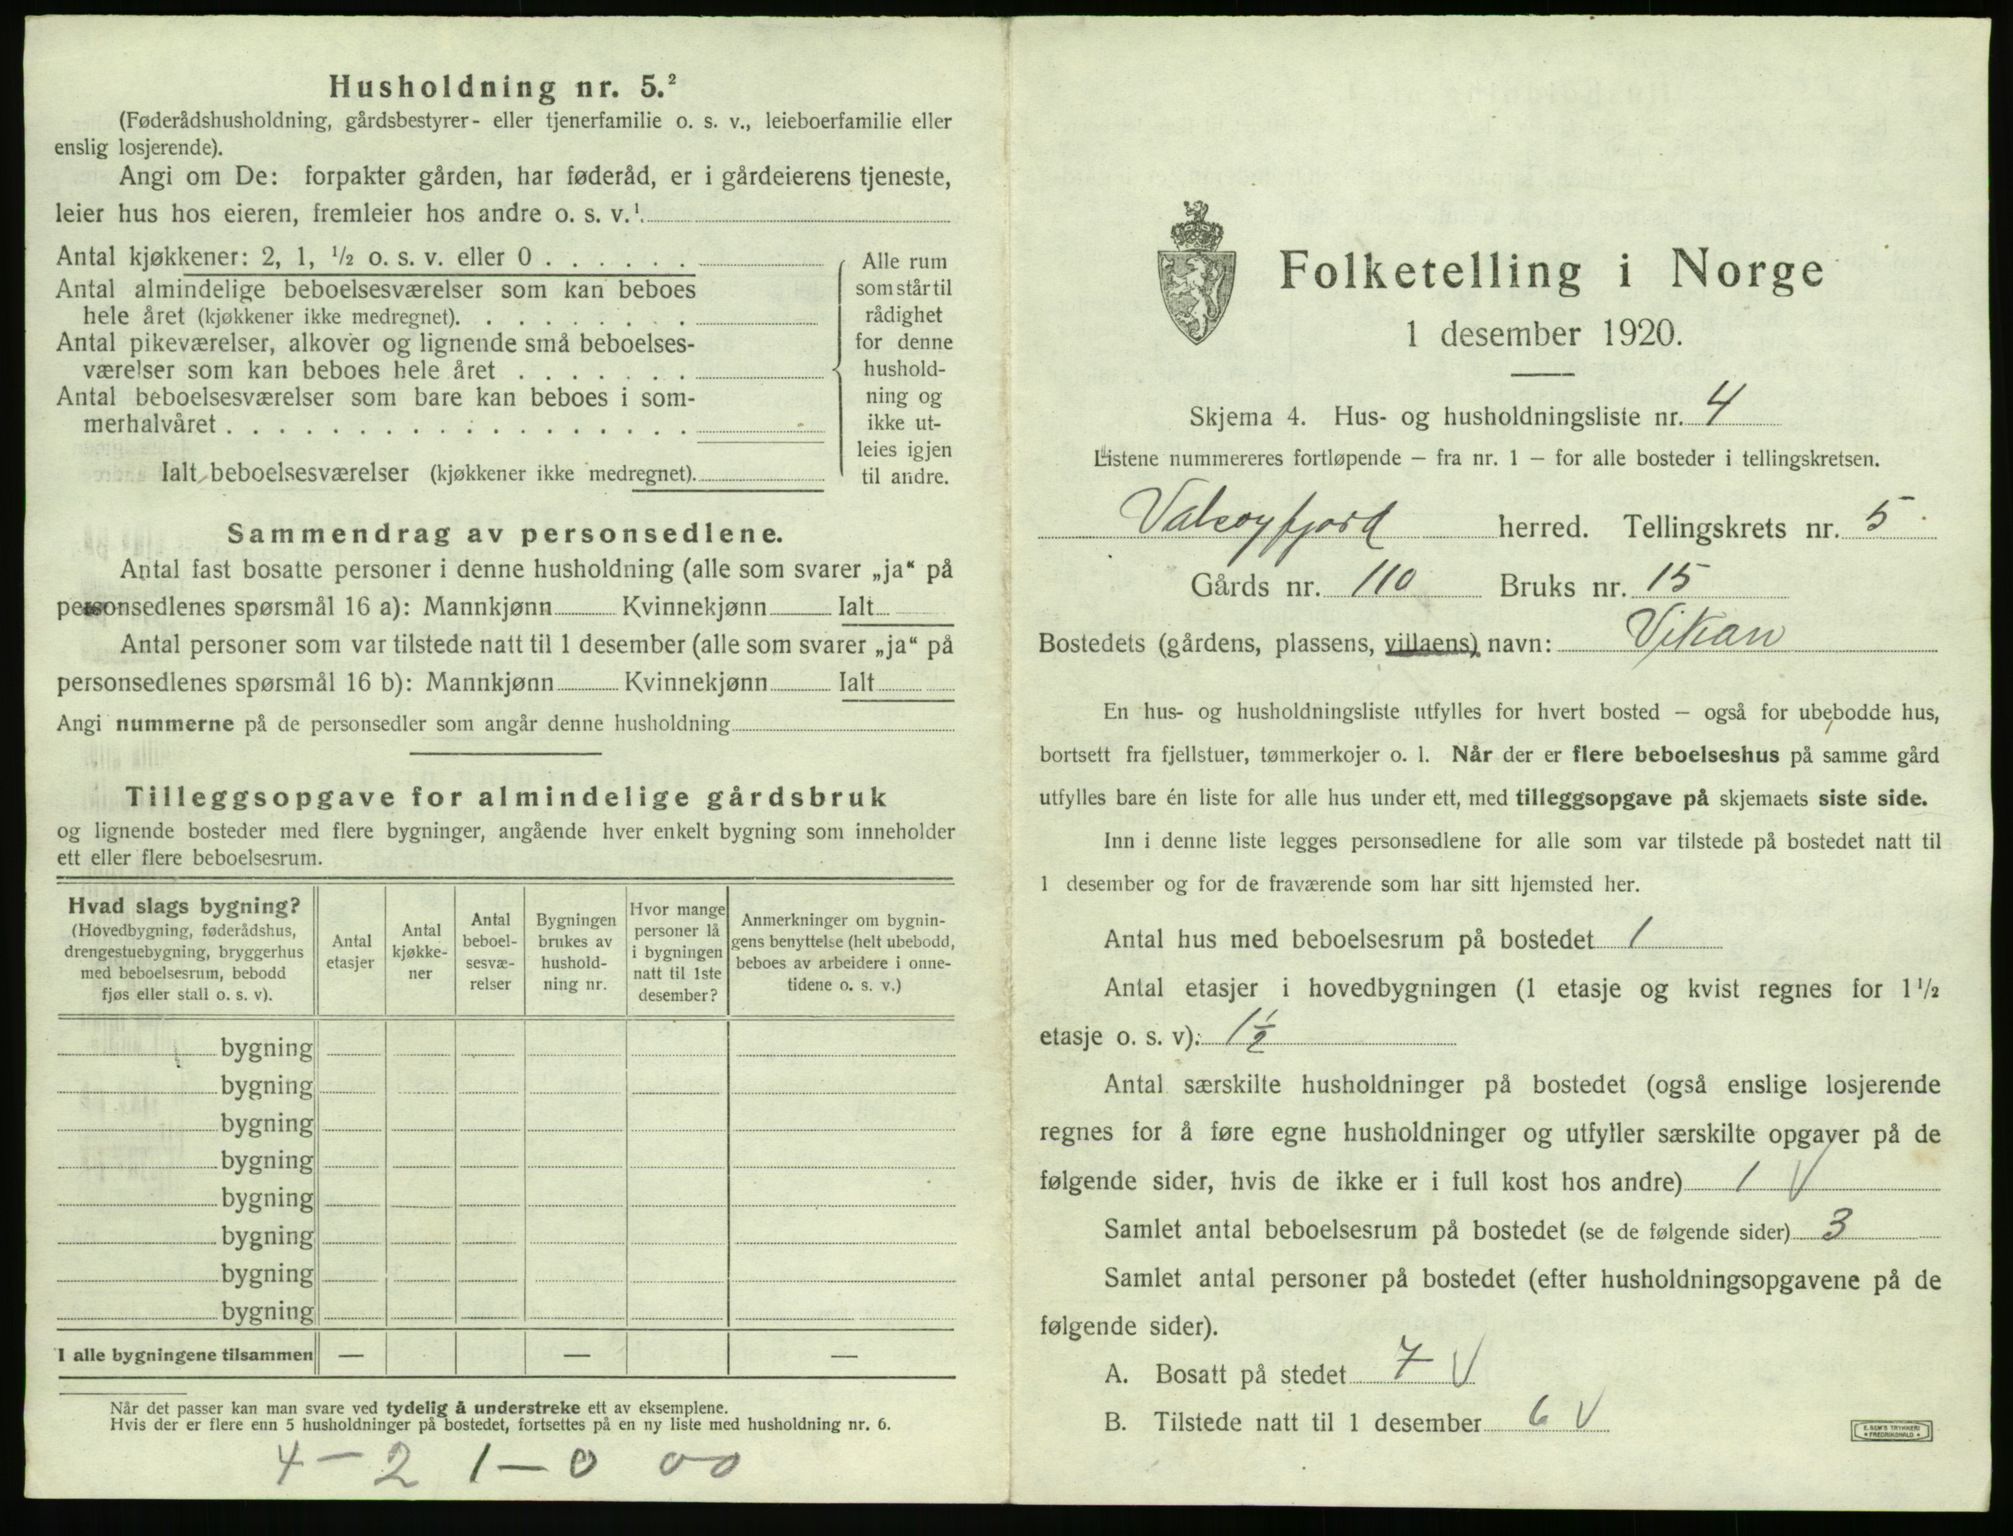 Husholdning nr. 5.²
(Føderådshusholdning, gårdsbestyrer- eller tjenerfamilie o. s. v., leieboerfamilie eller
enslig losjerende).
Angi om De: forpakter gården, har føderåd, er i gårdeierens tjeneste,
leier hus hos eieren, fremleier hos andre o. s. v.¹
Antal kjøkkener: 2, 1, ½ o. s. v. eller 0 . . . . . .
Antal almindelige beboelsesværelser som kan beboes
hele året (kjøkkener ikke medregnet). . . . . . . . .
Antal pikeværelser, alkover og lignende små beboelses-
værelser som kan beboes hele året . . . . . . .
Antal beboelsesværelser som bare kan beboes i som-
merhalvåret . . . . . . . . . . . . . . . . . .
Ialt beboelsesværelser (kjøkkener ikke medregnet).
Alle rum
som står til
rådighet
for denne
hushold-
ning og
ikke ut-
leies igjen
til andre.
Sammendrag av personsedlene.
Antal fast bosatte personer i denne husholdning (alle som svarer „ja“ på
personsedlenes spørsmål 16 a): Mannkjønn Kvinnekjønn Ialt
Antal personer som var tilstede natt til 1 desember (alle som svarer „ja“ på
personsedlenes spørsmål 16 b): Mannkjønn Kvinnekjønn Ialt
Angi nummerne på de personsedler som angår denne husholdning
Tilleggsopgave for almindelige gårdsbruk
og lignende bosteder med flere bygninger, angående hver enkelt bygning som inneholder
ett eller flere beboelsesrum.
Hvad slags bygning?
(Hovedbygning, føderådshus,
drengestuebygning, bryggerhus
med beboelsesrum, bebodd
fjøs eller stall o. s. v).
Antal
etasjer
Antal
kjøkke-
ner
Antal
beboel-
sesvæ-
relser
Bygningen
brukes av
hushold-
ning nr.
Hvor mange
personer lå
i bygningen
natt til 1ste
desember?
Anmerkninger om bygnin-
gens benyttelse (helt ubebodd,
beboes av arbeidere i onne-
tidene o. s. v.)
bygning
bygning
bygning
bygning
bygning
bygning
bygning
bygning
I alle bygningene tilsammen — — —
Når det passer kan man svare ved tydelig å understreke ett av eksemplene.
Hvis der er flere enn 5 husholdninger på bostedet, fortsettes på en ny liste med husholdning nr. 6.
4 – 2 1 – 0 00
Folketelling i Norge
1 desember 1920.
Skjema 4. Hus- og husholdningsliste nr. 4
Listene nummereres fortløpende – fra nr. 1 – for alle bosteder i tellingskretsen.
Valsøyfjord herred. Tellingskrets nr. 5.
Gårds nr. 110 Bruks nr. 15
Bostedets (gårdens, plassens, villaens) navn: Vikan
En hus- og husholdningsliste utfylles for hvert bosted – også for ubebodde hus,
bortsett fra fjellstuer, tømmerkojer o. l. Når der er flere beboelseshus på samme gård
utfylles bare én liste for alle hus under ett, med tilleggsopgave på skjemaets siste side.
Inn i denne liste legges personsedlene for alle som var tilstede på bostedet natt til
1 desember og for de fraværende som har sitt hjemsted her.
Antal hus med beboelsesrum på bostedet 1
Antal etasjer i hovedbygningen (1 etasje og kvist regnes for 1½
etasje o. s. v): 1½
Antal særskilte husholdninger på bostedet (også enslige losjerende
regnes for å føre egne husholdninger og utfyller særskilte opgaver på de
følgende sider, hvis de ikke er i full kost hos andre) 1 V
Samlet antal beboelsesrum på bostedet (se de følgende sider) 3
Samlet antal personer på bostedet (efter husholdningsopgavene på de
følgende sider).
A. Bosatt på stedet 7 V
B. Tilstede natt til 1 desember 6 V
E. SEM'S TRYKKERI
• FREDRIKSHALD •